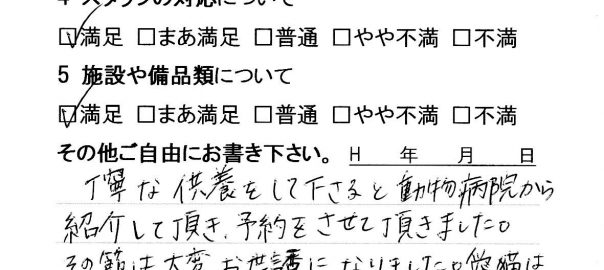 4 スタッフの対応について
☑満足 □まあ満足 □普通 □やや不満 □不満
5 施設や備品類について
☑満足 □まあ満足 □普通 □やや不満 □不満
その他ご自由にお書き下さい。 H 年 月 日
丁寧な供養をして下さると動物病院から
紹介して頂き、予約をさせて頂きました。
その節は大変お世話になりました。愛猫は